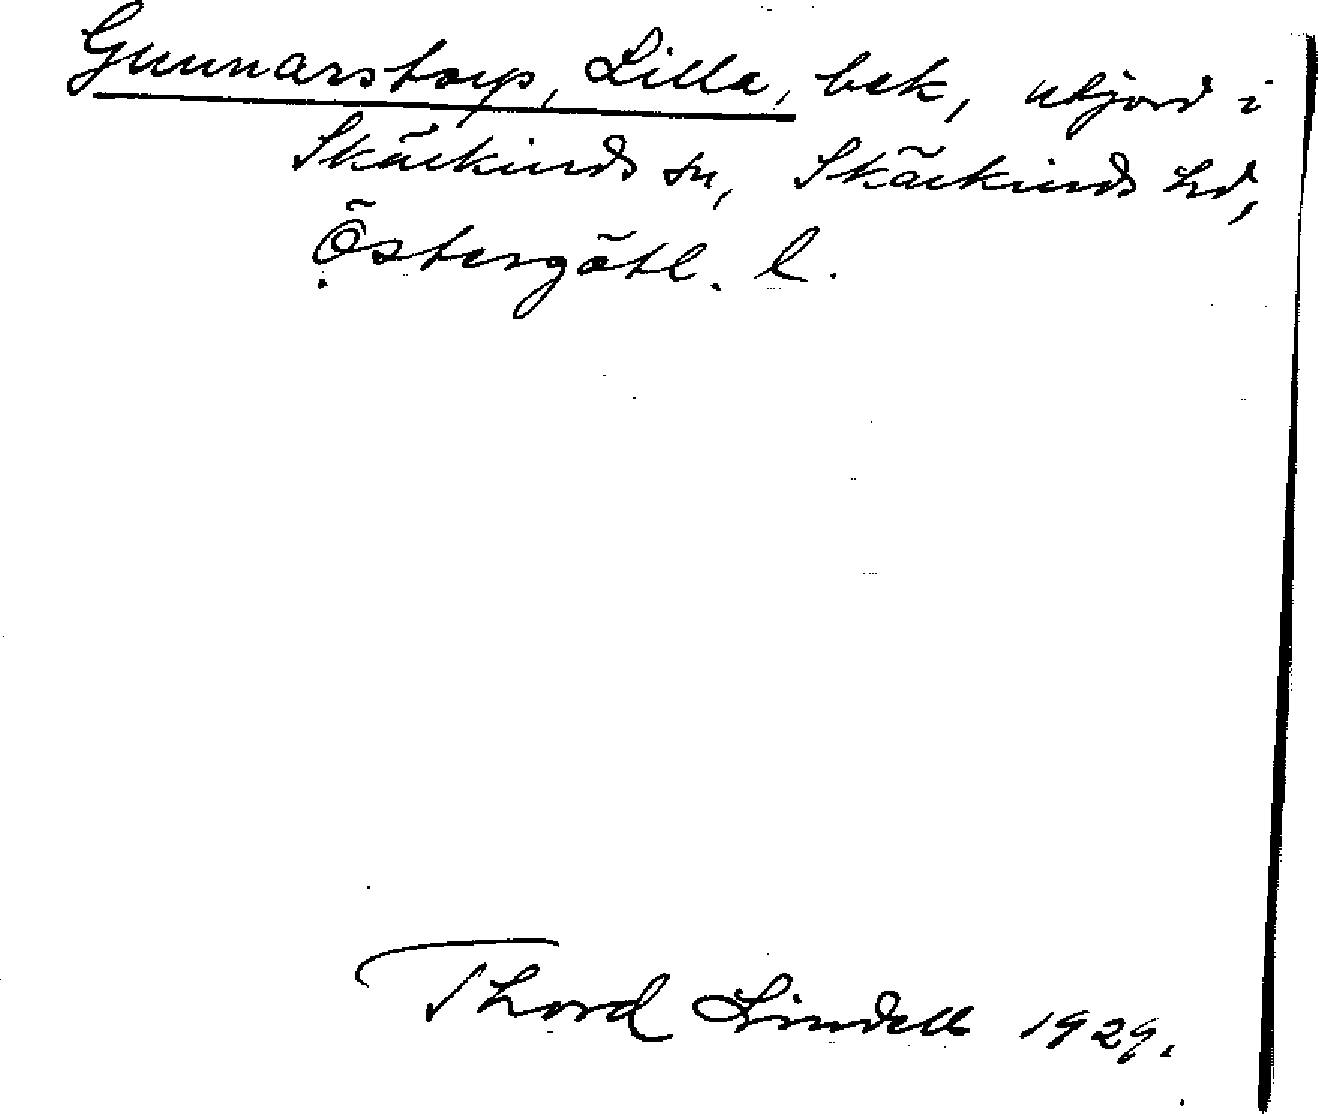 Gunnarstorp, Lilla, bek, utjord i
Skärkinds sn, Skärkinds hd,
Östergötl. l.
Thord Lindell 1929.